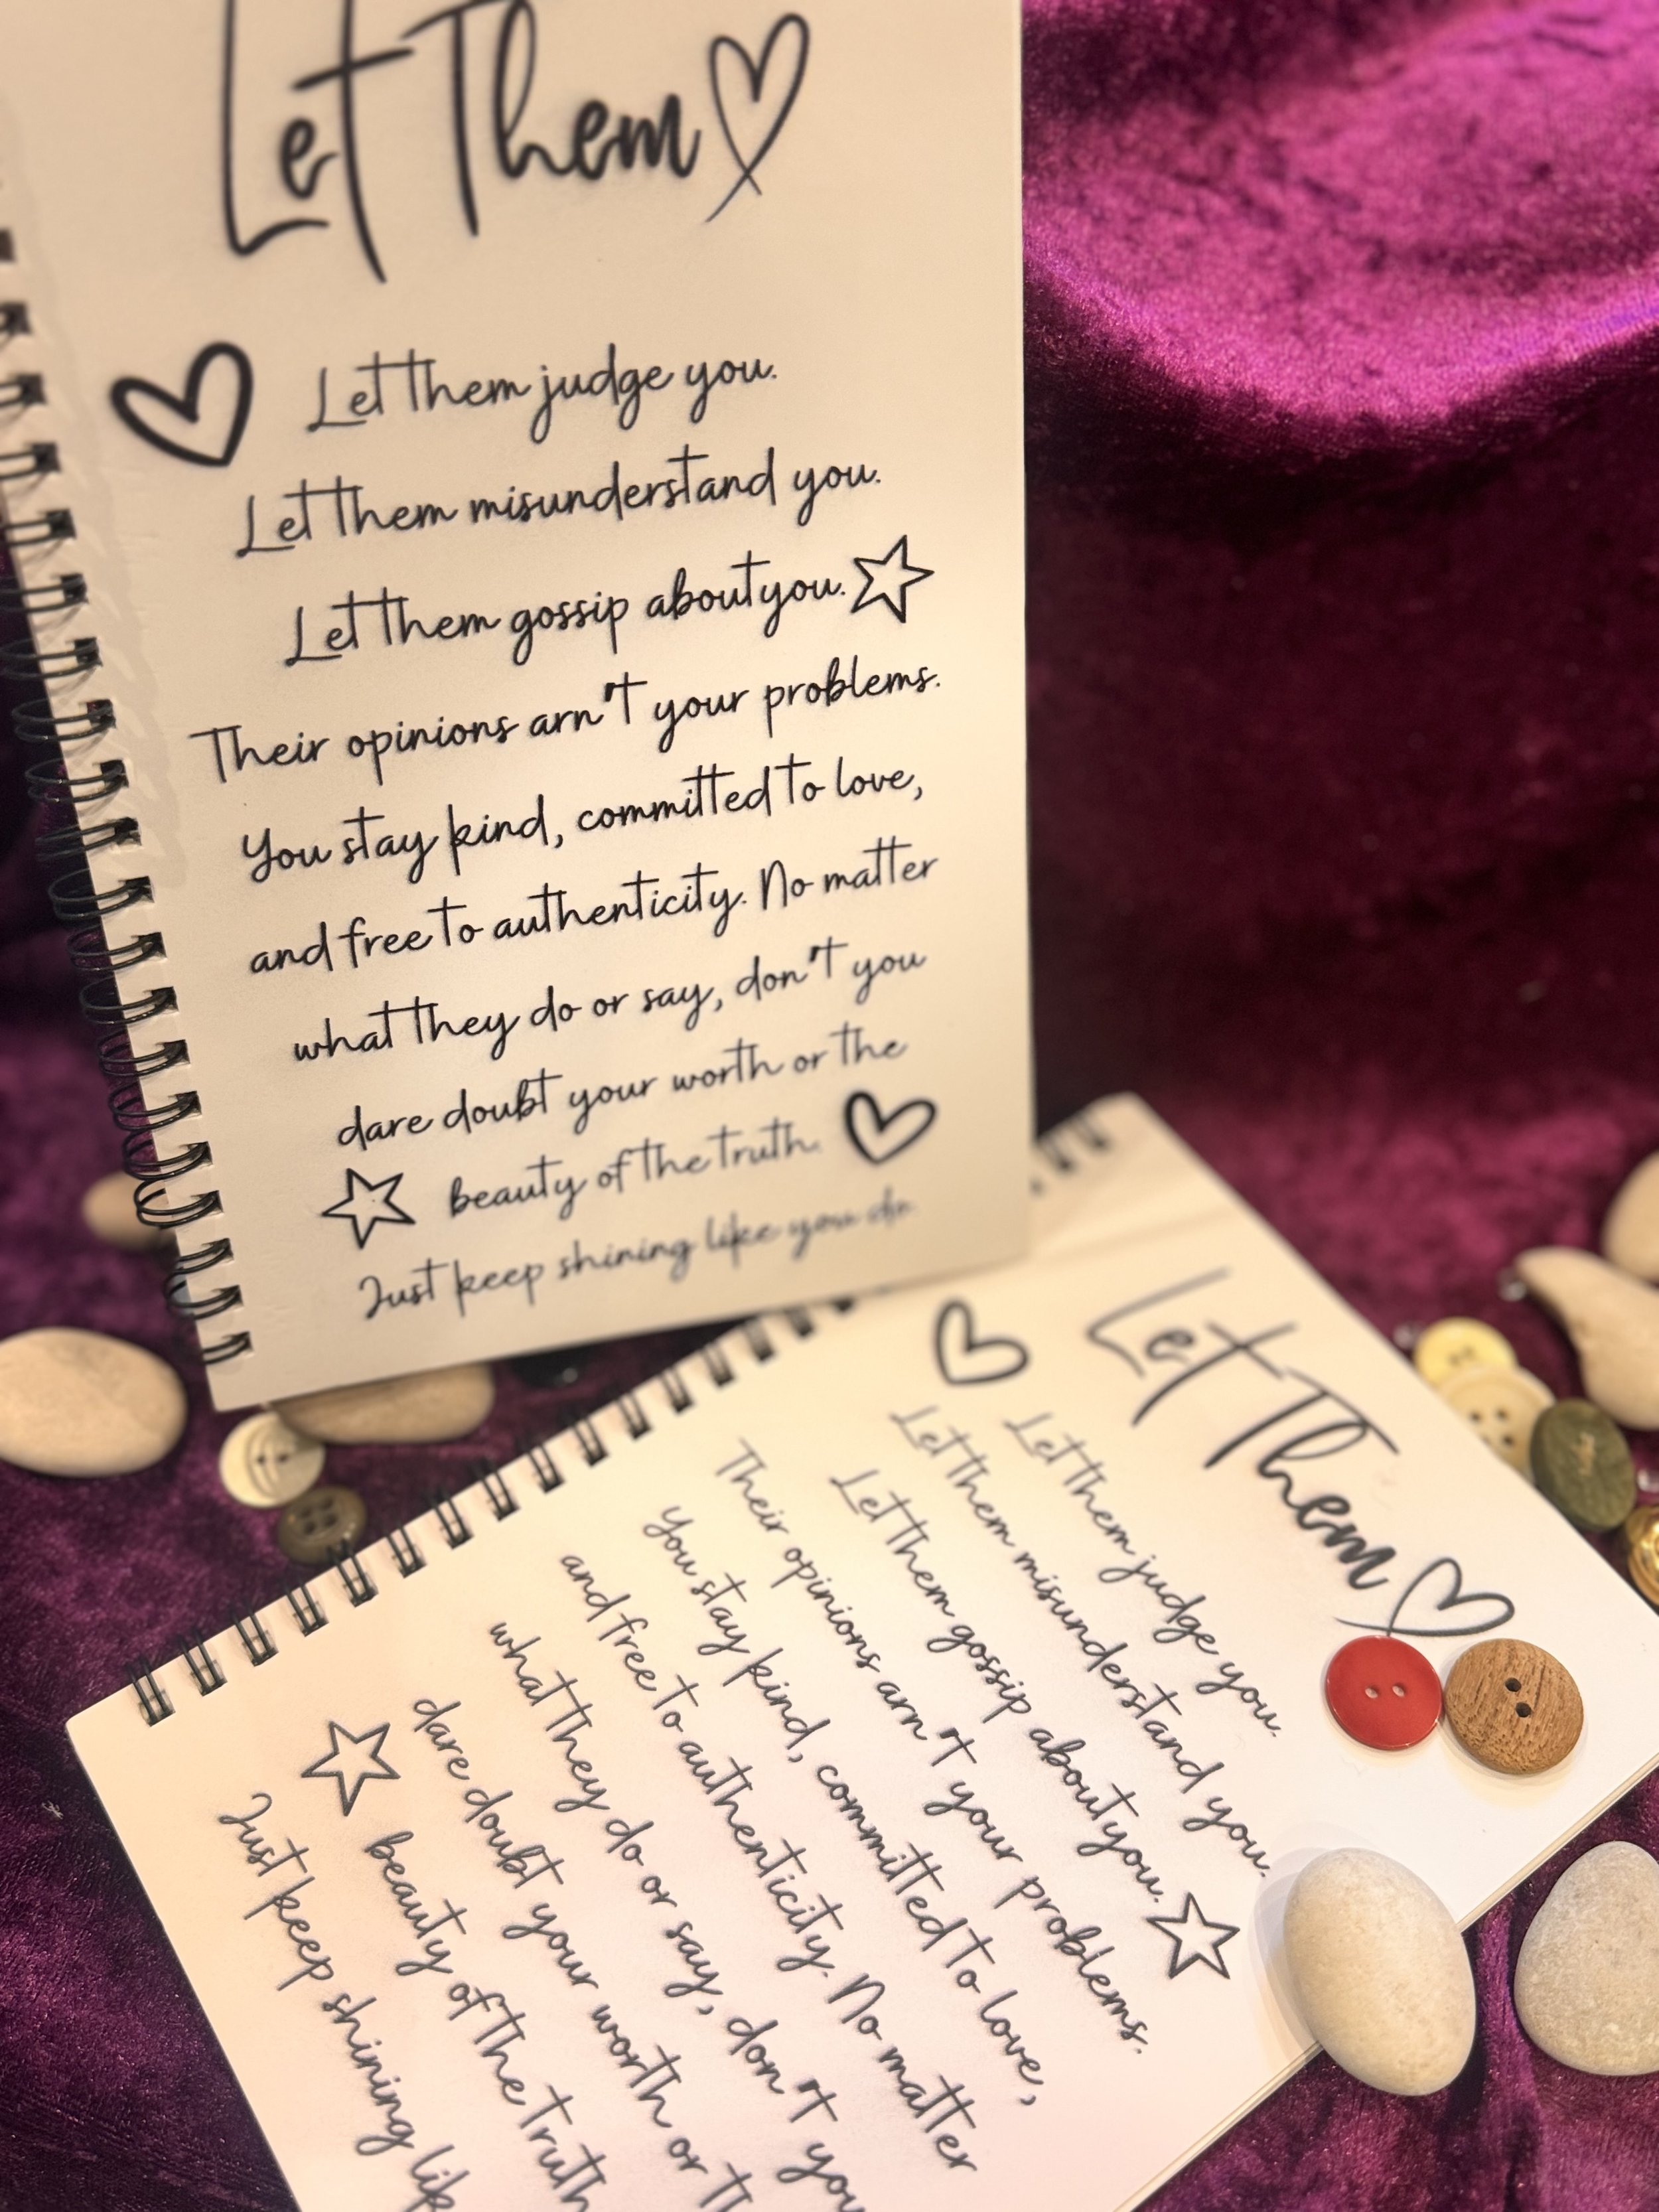 Let Them
Let them judge you.
Let them misunderstand you.
Let them gossip about you.
Their opinions arn't your problems.
You stay kind, committed to love,
and free to authenticity. No matter
what they do or say, don't you
dare doubt your worth or the
beauty of the truth.
Just keep shining like you do.
Let Them
Let them judge you.
Let them misunderstand you.
Let them gossip about you.
Their opinions arn't your problems.
You stay kind, committed to love,
and free to authenticity. No matter
what they do or say, don't you
dare doubt your worth or th
beauty of the truth
Just keep shining lik